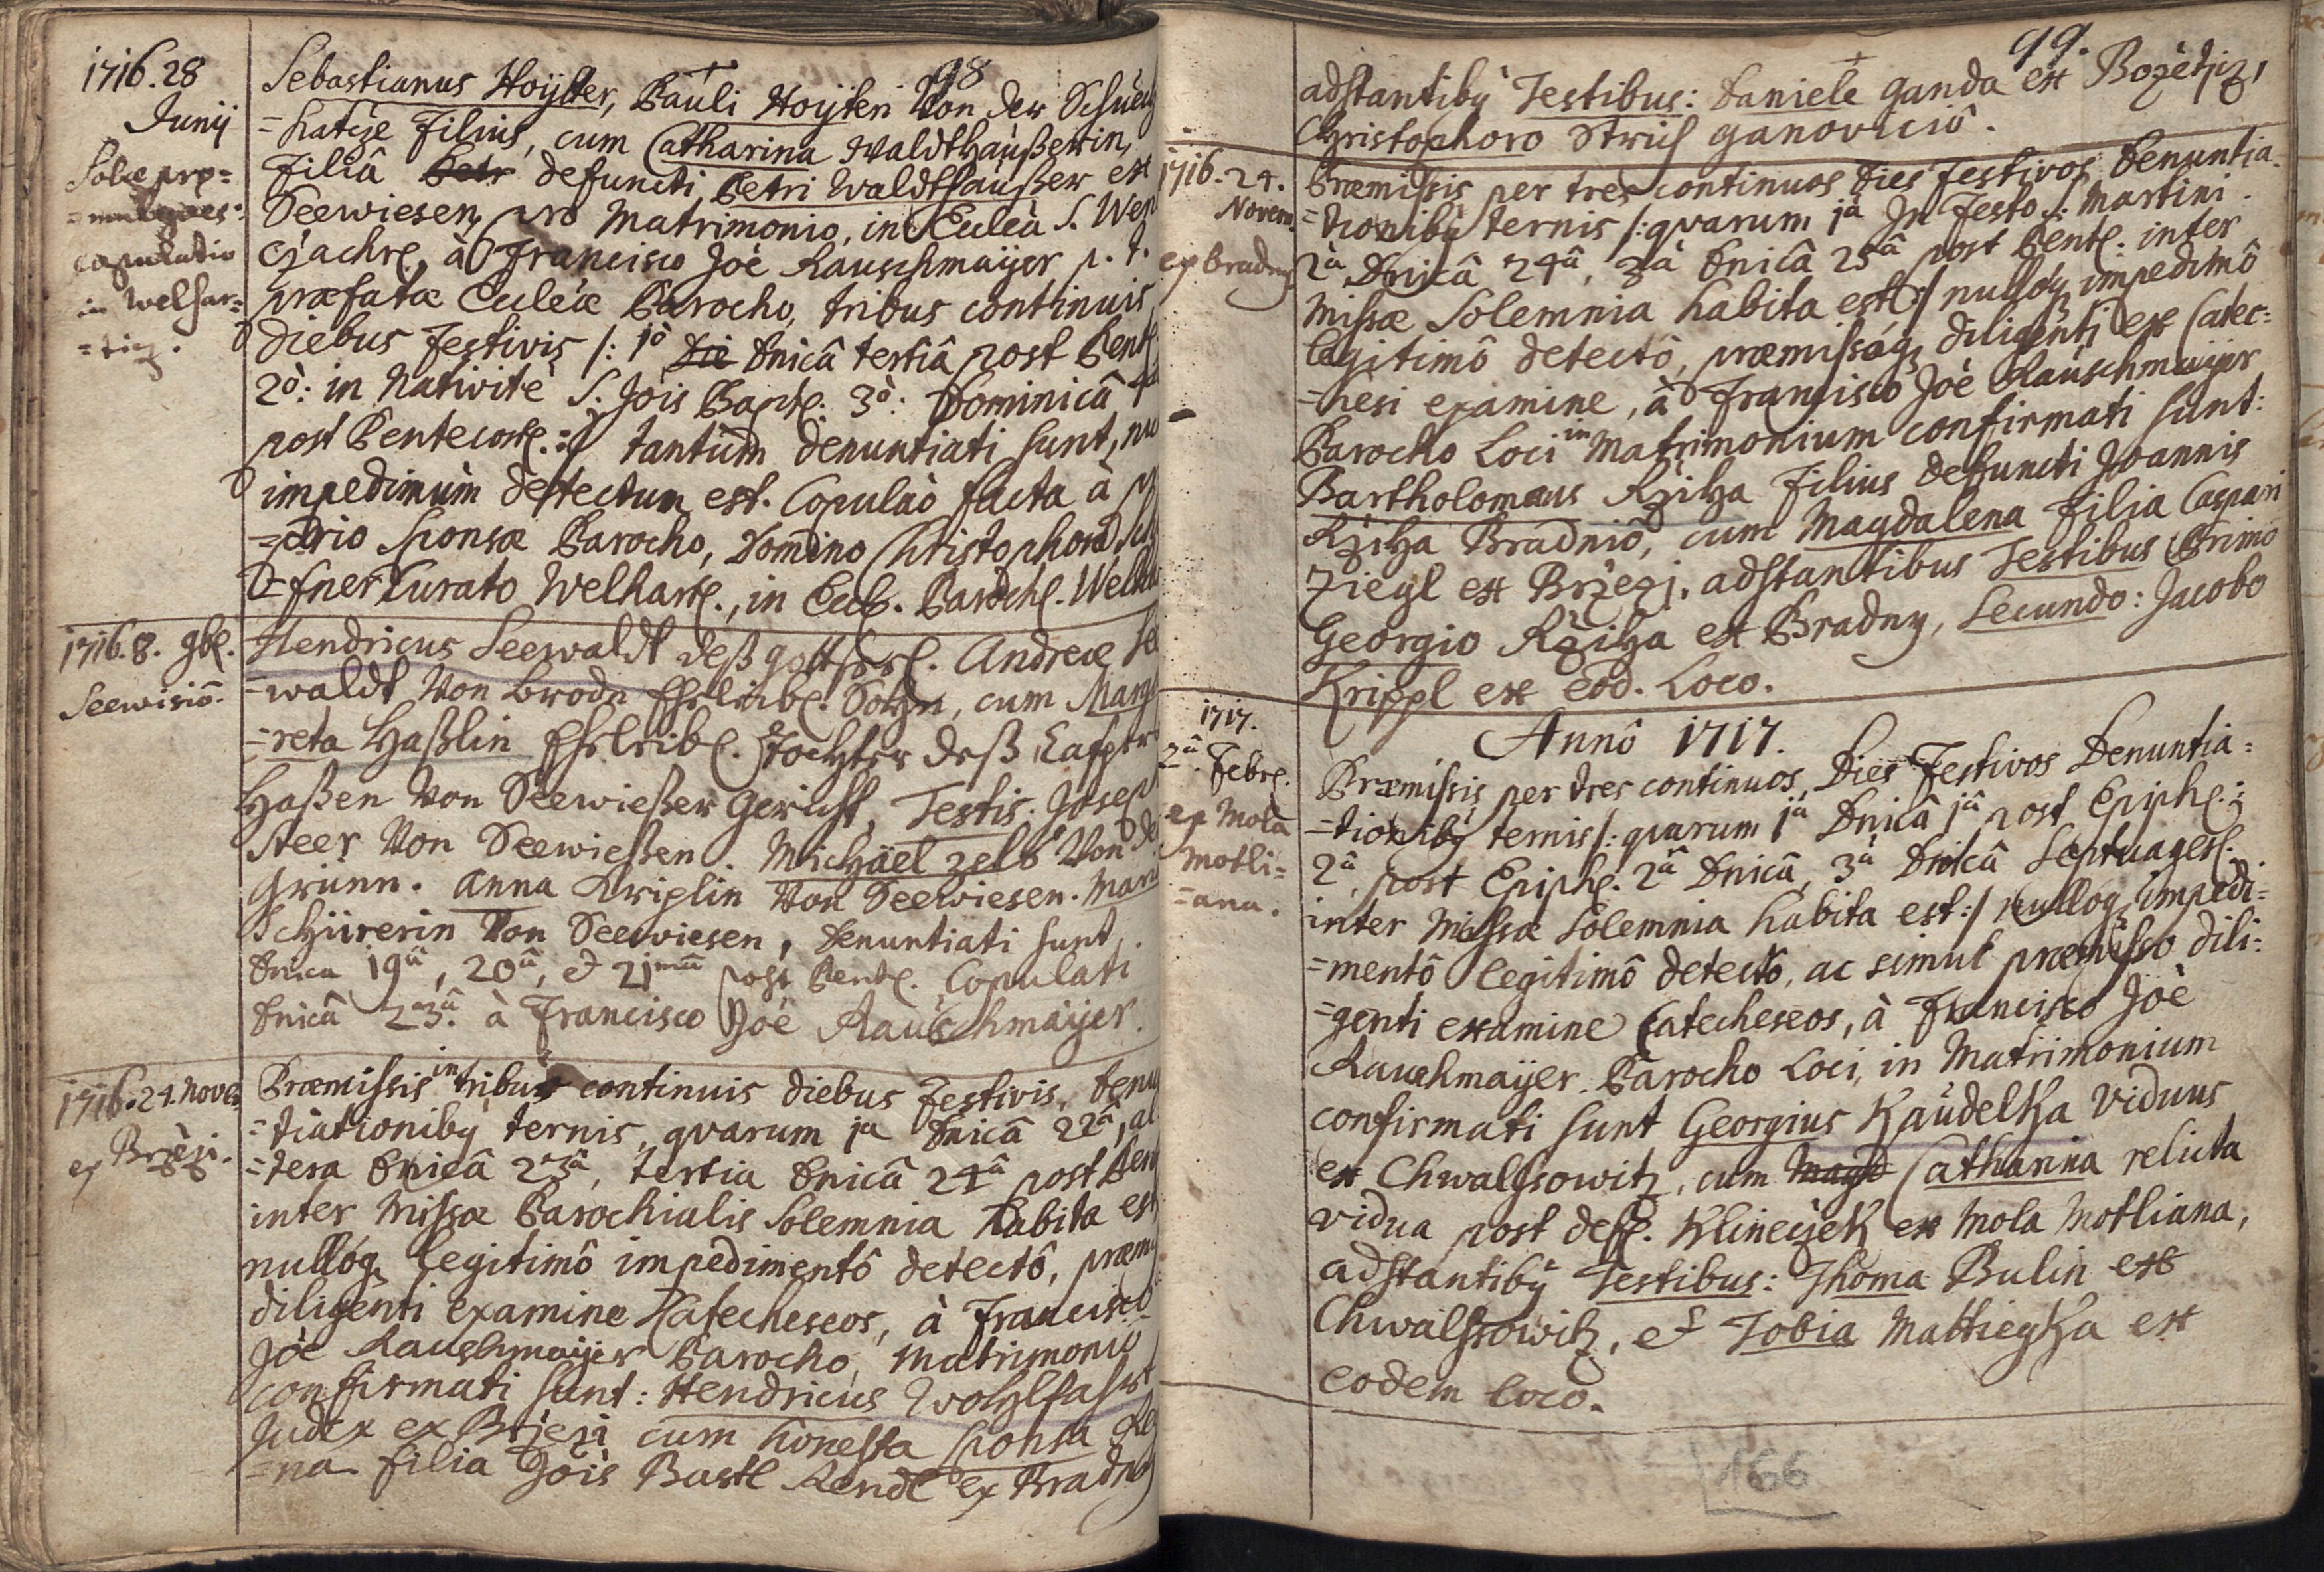 98
1716. 28
Junij
Solae pro=
copulatio
in Welhar=
=titz.
Sebastianus Hoÿster, Pauli Hoÿsteri Von der
=hatize Filius, cum Catharina Waldthaußerin,
Filiâ Petr defuncti Petri Waldthaußer ex
Seewiesen, pro Matrimonio, in Eccleâ S. Wen
à Francisco Joè Rauschmaÿer p. t.
praefatae Eccleae Parocho, tribus continuis
diebus Festivis /: 1ò Die Dnicâ tertiâ post Pent
2ò: in Nativite S. Jois Bapt. 3ò: Dominicâ 4ta
post Pentecost. :/ tantùm denuntiati sunt, nu
impedimùm detectum est. Copulào facta à
=prio Sponsae Parocho, Domino Christophoro
=fner Curato Welhart., in Eccl. Paroch. Welh
1716. 8. 9b.
Seewisiô.
Hendricus Seewaldt deß gottseel. Andreae See
=waldt Von Brodn Ehrleibl. Sohn, cum Marga
=reta Haßlin Ehrleibl. Tochter deß Casper
Haßen Von Seewießer gericht, Testis: Joseph
Steer Von Seewießen. Michäel Zelb Von de
Grünn. Anna Kriplin Von Seewiesen. Mari
Schürerin Von Seewiesen, Denuntiati sunt
Dnica 19â, 20â, et 21mâ post Pent. Copulati
Dnicâ 23â. à Francisco Joè Rauschmaÿer.
1716. 24. Nove.
ex Brzezi.
Praemissis in tribus continuis diebus Festivis, Denu
=tiationibq ternis, quarum 1a Dnicâ 22â, al
=tera Dnicâ 23â, tertia Dnicâ 24â post Pen
inter Missae Parochialis Solemnia habita est
nullóq legitimô impedimentô detectô, praem
diligenti examine Catecheseos, à Francisco
Joè Rauschmaÿer Parocho, Matrimonio
confirmati sunt: Hendricus Wohlfahrt
Judex ex Brzezi cum honesta sponsa
=na filia Jois Bastl Rendl ex Bradny
99.
adstantibq Testibus: Daniele Ganda ex Bozetiz,
Christophoro Strich Ganoviciô.
1716. 24.
Novem.
ex Bradny
Praemissis per tres continuos Dies Festivos Denuntia=
=tionibq ternis /: quarum 1a In Festo S: Martini
2à Dnicâ 24â, 3à Dnicâ 25â post Pent. inter
Missae Solemnia habita est :/ nullóq impedimô
legitimô detectô, praemissóq diligenti ex Catec=
=hesi examine, à Francisco Joè Rauschmaijer
Parocho Loci in Matrimonium confirmati sunt:
Bartholomaeus Rziha Filius defuncti Joannis
Rziha Bradniô, cum Magdalena Filia Caspari
Ziegl ex Brzezi, adstantibus Testibus Primo
Georgio Rziha ex Bradny, Secundo: Jacobo
Krippl ex Eod. Loco.
Annô 1717.
1717.
2â. Febr.
ex Mola
Motli=
=ana.
Praemissis per tres continuos Dies Festivos Denuntia=
=tionibq ternis /: quarum 1a Dnicâ 1â post Epiph.:
2â, post Epiph. 2â Dnicâ, 3à Dnicâ Septuages.
inter Missae Solemnia habita est :/ nullóq impedi=
=mentô legitimô detectô, ac simul praemisso dili=
=genti examine Catecheseos, à Francisco Joè
Rauchmaÿer. Parocho Loci, in Matrimonium
confirmati sunt Georgius Kaudelka Viduus
ex Chwalschowitz, cum Magd Catharina relicta
vidua post def. Klineczek ex Mola Motliana,
adstantibq Testibus: Thoma Bulin ex
Chwalschowitz, et Tobia Mattiegka ex
eodem loco.
166